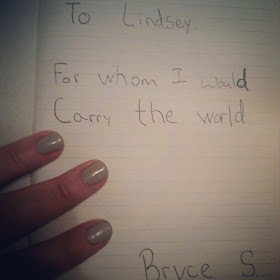 To Lindsey.
For whom I would
Carry the world
Bryce S.